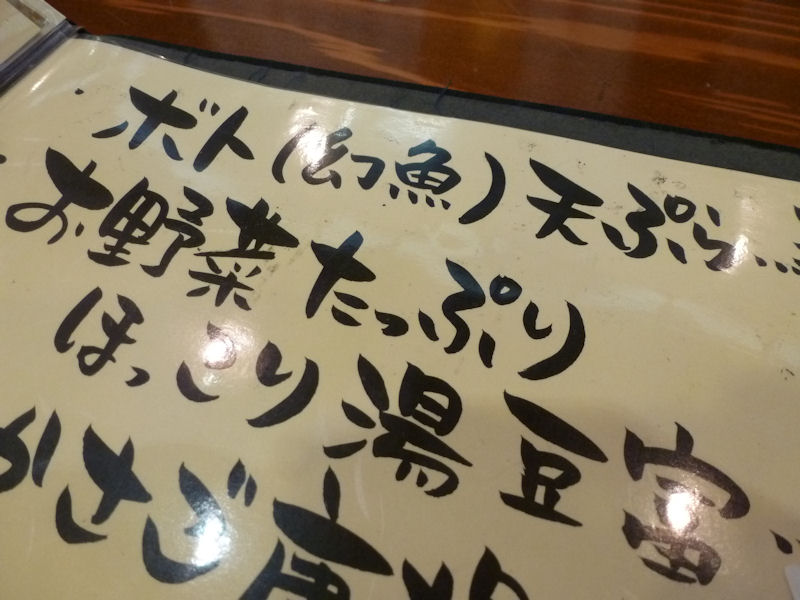 ・ボト(幻魚)天ぷら…
・お野菜たっぷり
ほっこり湯豆富…
かさご唐揚